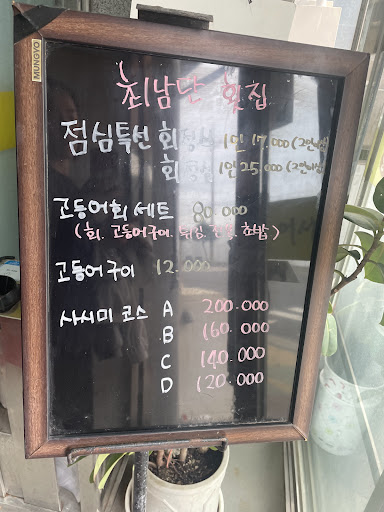 MUNGYO
최남단 횟집
점심특선 회정식 1인 17.000 (2인이상)
회 1인 25.000 (2인이상)
고등어회 세트 80.000
(회. 고등어구이. 튀김. 초밥)
고등어구이 12.000
사시미 코스 A 200.000
B 160.000
C 140.000
D 120.000